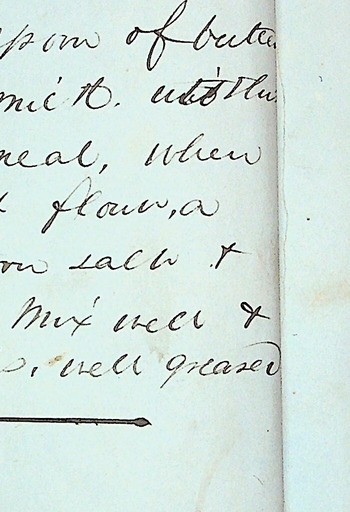 spoon of butter
milk. into the
meal, when
flour, a
salt &
Mix well &
well greased